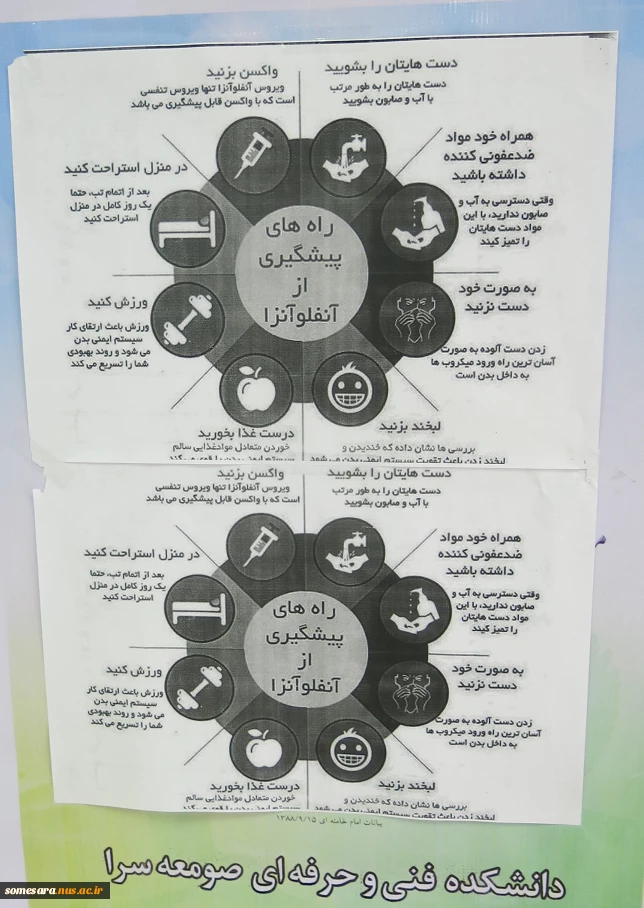 دست هایتان را بشویید
دست هایتان را به طور مرتب
با آب و صابون بشویید
واکسن بزنید
ویروس آنفلوآنزا تنها ویروس تنفسی
است که با واکسن قابل پیشگیری می باشد
همراه خود مواد
ضدعفونی کننده
داشته باشید
وقتی دسترسی به آب و
صابون ندارید، با این
مواد دست هایتان
را تمیز کیند
در منزل استراحت کنید
بعد از اتمام تب، حتما
یک روز کامل در منزل
استراحت کنید
راه های
پیشگیری
از
آنفلوآنزا
به صورت خود
دست نزنید
زدن دست آلوده به صورت
آسان ترین راه ورود میکروب ها
به داخل بدن است
ورزش کنید
ورزش باعث ارتقای کار
سیستم ایمنی بدن
می شود و روند بهبودی
شما را تسریع می کند
لبخند بزنید
بررسی ها نشان داده که خندیدن و
لبخند زدن باعث تقویت سیستم ایمنی بدن می شود
درست غذا بخورید
خوردن متعادل موادغذایی سالم
سیستم ایمنی بدن را قوی می کند
دست هایتان را بشویید
دست هایتان را به طور مرتب
با آب و صابون بشویید
واکسن بزنید
ویروس آنفلوآنزا تنها ویروس تنفسی
است که با واکسن قابل پیشگیری می باشد
همراه خود مواد
ضدعفونی کننده
داشته باشید
وقتی دسترسی به آب و
صابون ندارید، با این
مواد دست هایتان
را تمیز کیند
در منزل استراحت کنید
بعد از اتمام تب، حتما
یک روز کامل در منزل
استراحت کنید
راه های
پیشگیری
از
آنفلوآنزا
به صورت خود
دست نزنید
زدن دست آلوده به صورت
آسان ترین راه ورود میکروب ها
به داخل بدن است
ورزش کنید
ورزش باعث ارتقای کار
سیستم ایمنی بدن
می شود و روند بهبودی
شما را تسریع می کند
لبخند بزنید
بررسی ها نشان داده که خندیدن و
لبخند زدن باعث تقویت سیستم ایمنی بدن می شود
درست غذا بخورید
خوردن متعادل موادغذایی سالم
سیستم ایمنی بدن را قوی می کند
بیانات امام خامنه ای ۱۳۸۸/۹/۱۵
دانشکده فنی و حرفه ای صومعه سرا
somesara.nus.ac.ir